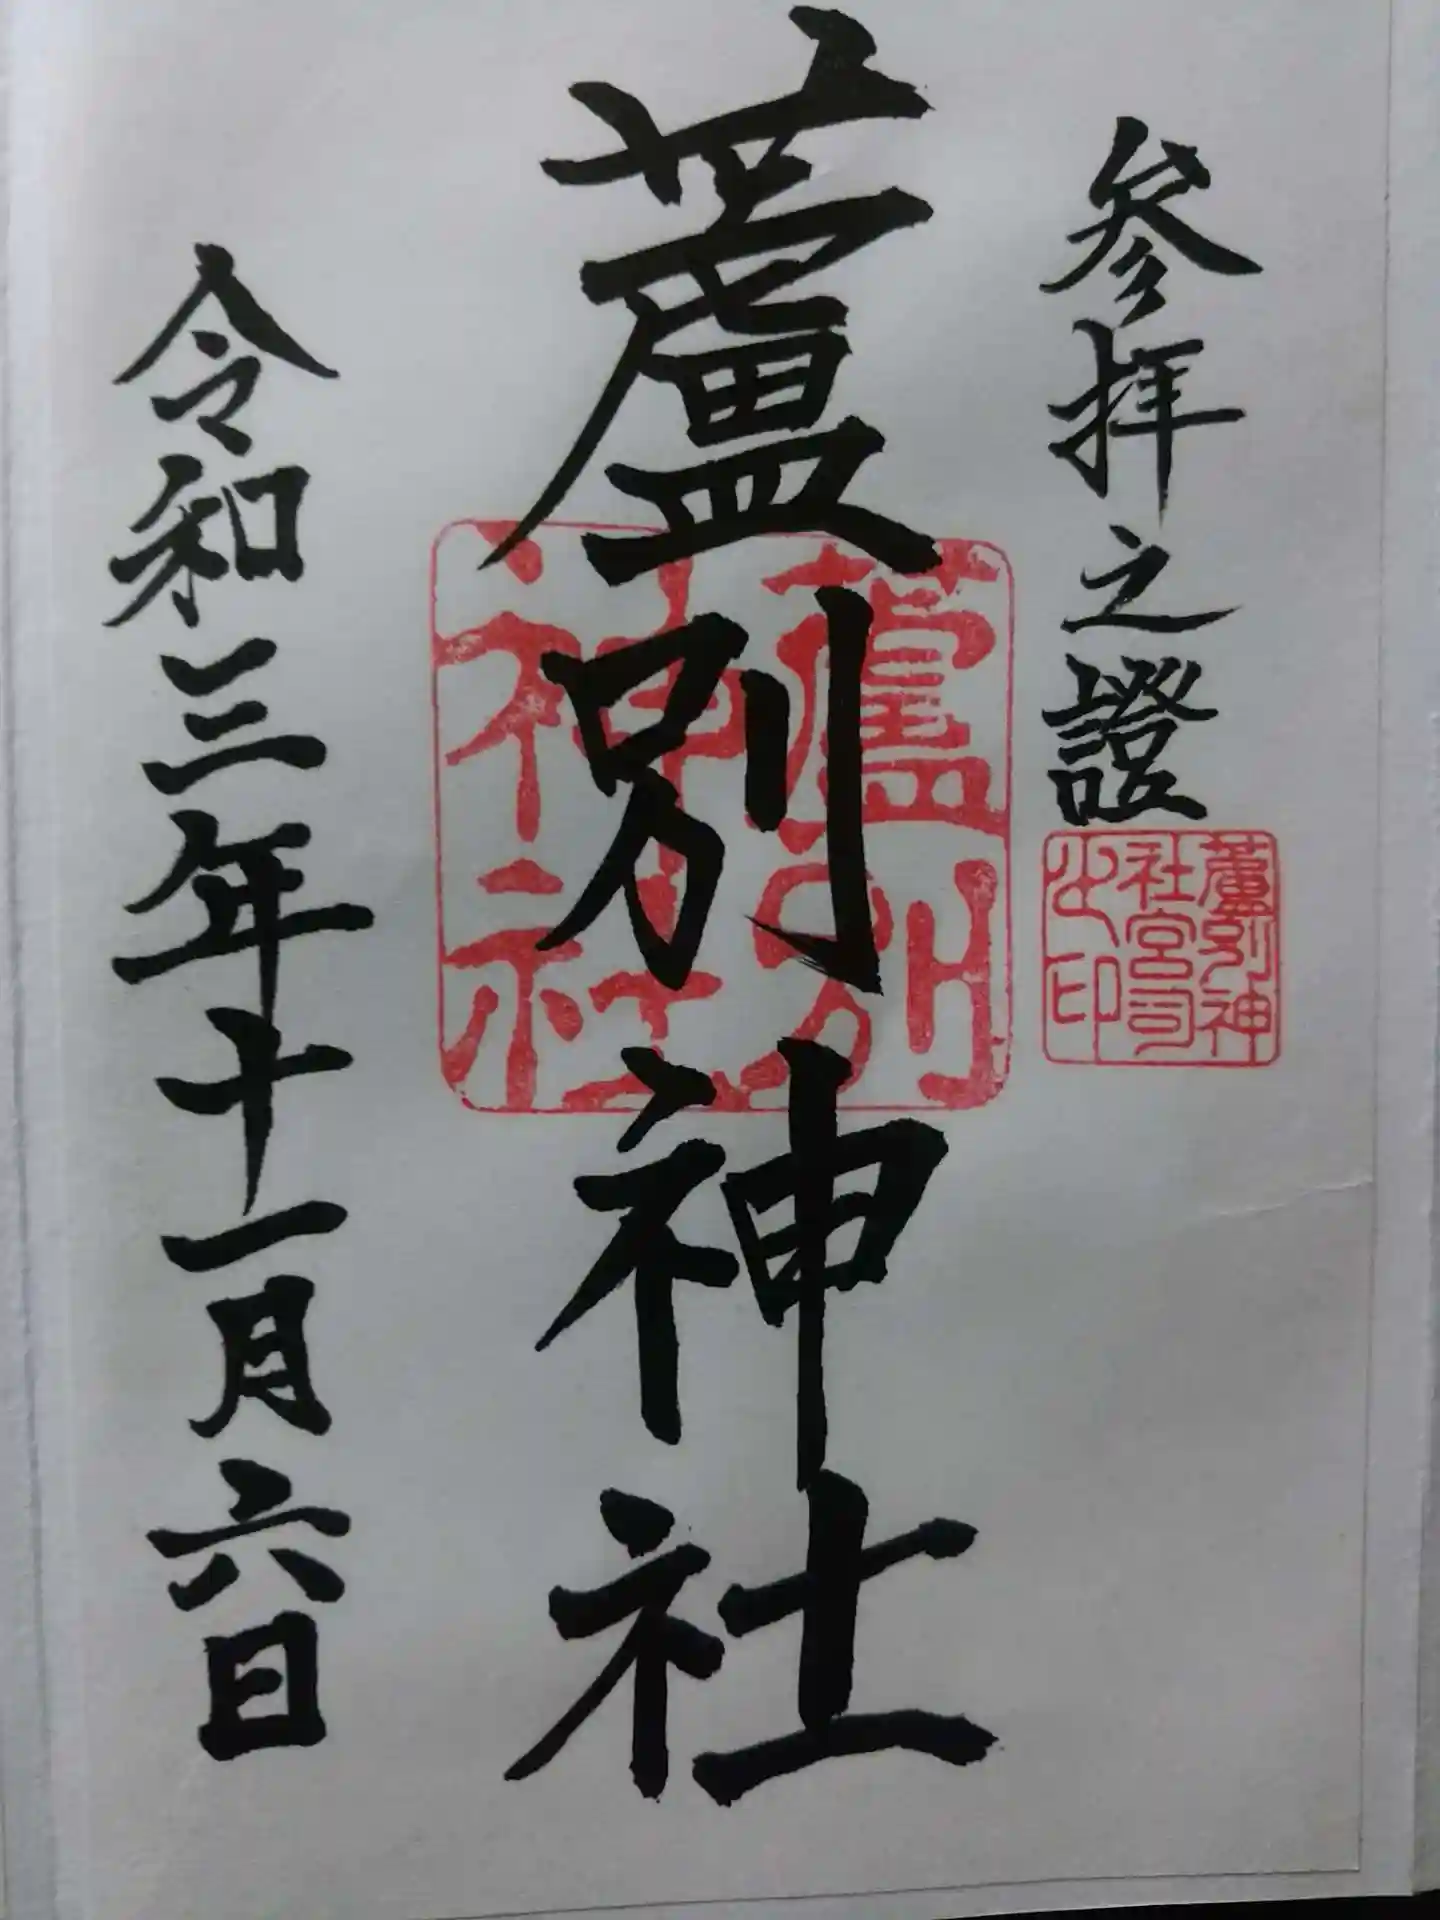 参拝之證
蘆別神
社宮司
之印
蘆別神社
蘆別
神社
令和三年十一月六日